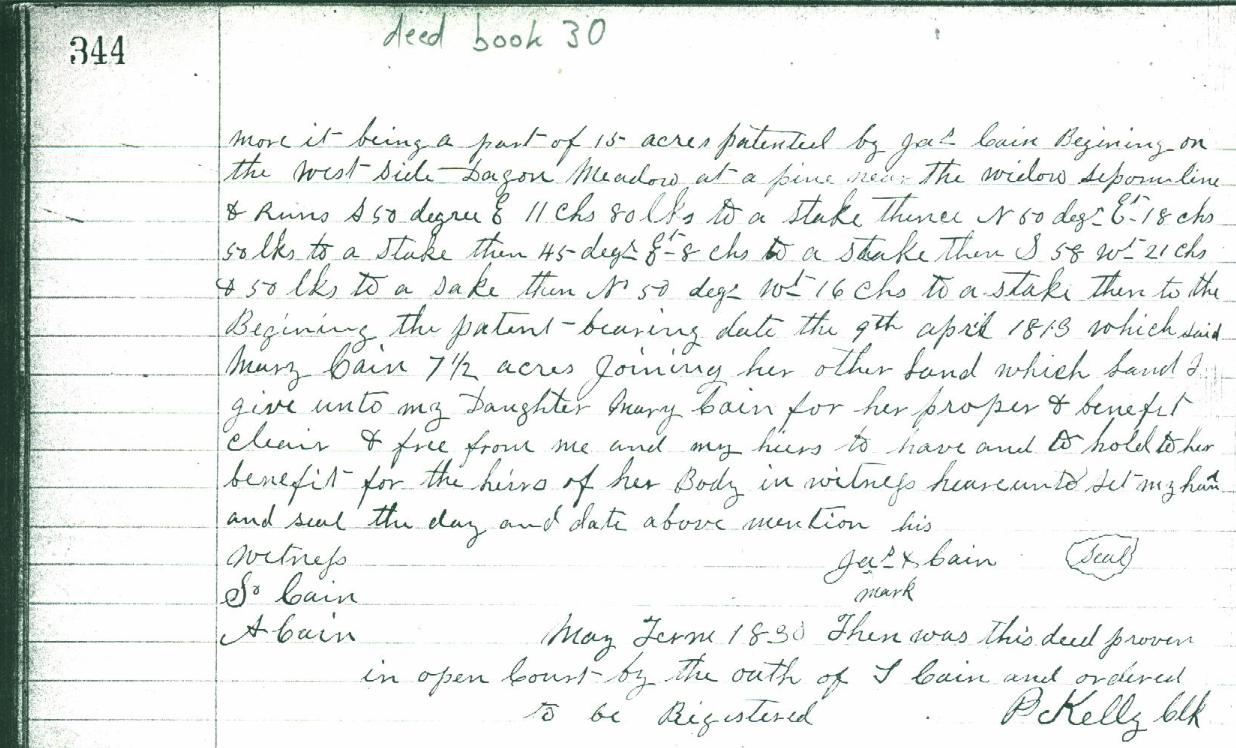 344
deed book 30
more it being a part of 15 acres patented by Jas Cain Begining on
the west side Dagon Meadow at a pine near the widow line
& Runs S 50 degree E 11 chs 80 lks to a stake thence N 50 degs Et 18 chs
50 lks to a stake then 45 degs Et 8 chs to a stake then S 58 Wt 21 chs
& 50 lks to a sake then N 50 degs Wt 16 chs to a stake then to the
Begining the patent bearing date the 9th april 1813 which said
Mary Cain 7 1/2 acres Joining her other Land which Land I
give unto my Daughter Mary Cain for her proper & benefit
clear & free from me and my heirs to have and to hold to her
benefit for the heirs of her Body in witness heareunto set my han
and seal the day and date above mention his
Witness Jas x Cain Seal
mark
Sr Cain
A Cain May Term 1830 Then was this deed proven
in open Court by the oath of S Cain and ordered
to be Registered P Kelly Clk